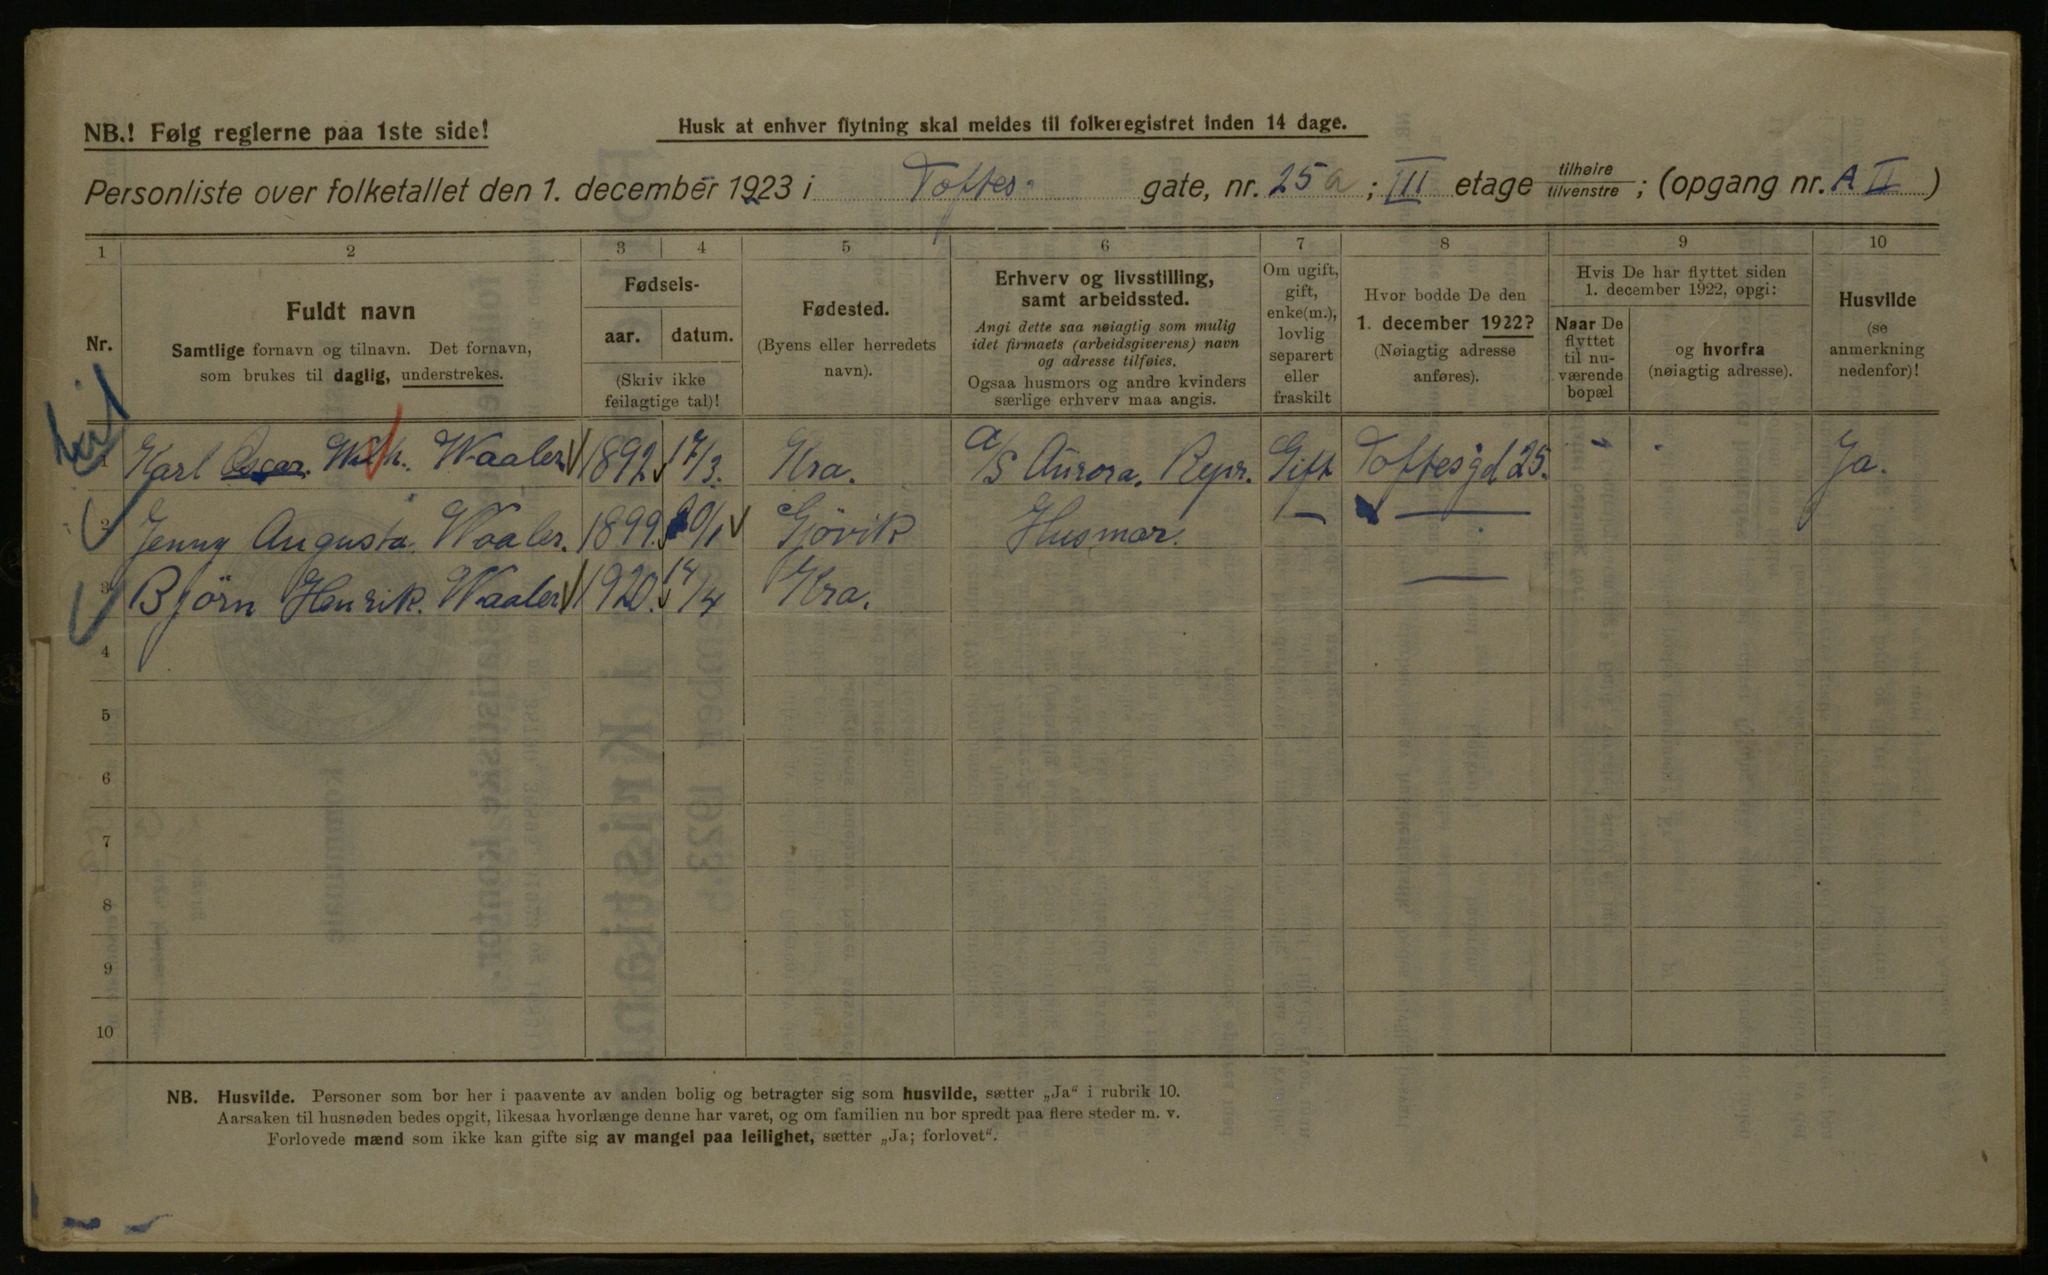 NB.! Følg reglerne paa 1ste side!
Husk at enhver flytning skal meldes til folkeregistret inden 14 dage.
Personliste over folketallet den 1. december 1923 i Toftes gate, nr. 25a; III etage tilhøire tilvenstre; (opgang nr. A II)
1 2 3 4 5 6 7 8 9 10
Nr.
Fuldt navn
Samtlige fornavn og tilnavn. Det fornavn,
som brukes til daglig, understrekes.
Fødsels-
aar. datum.
(Skriv ikke
feilagtige tal)!
Fødested.
(Byens eller herredets
navn).
Erhverv og livsstilling,
samt arbeidssted.
Angi dette saa nøiagtig som mulig
idet firmaets (arbeidsgiverens) navn
og adresse tilføies.
Ogsaa husmors og andre kvinders
særlige erhverv maa angis.
Om ugift,
gift,
enke(m.),
lovlig
separert
eller
fraskilt
Hvor bodde De den
1. december 1922?
(Nøiagtig adresse
anføres).
Hvis De har flyttet siden
1. december 1922, opgi:
Naar De
flyttet
til nu-
værende
bopæl
og hvorfra
(nøiagtig adresse).
Husvilde
(se
anmerkning
nedenfor)!
1 Karl Oscar. Wilh. Waaler 1892 17/3. Kra. A/S Aurora. Repr. Gift Toftesgd 25. " Ja.
2 Jenny Augusta Waaler. 1899. 20/1 Gjövik Husmor. — —
3 Björn Henrik. Waaler 1920. 14/4 Kra. —
4
5
6
7
8
9
10
NB. Husvilde. Personer som bor her i paavente av anden bolig og betragter sig som husvilde, sætter „Ja“ i rubrik 10.
Aarsaken til husnøden bedes opgit, likesaa hvorlænge denne har varet, og om familien nu bor spredt paa flere steder m. v.
Forlovede mænd som ikke kan gifte sig av mangel paa leilighet, sætter „Ja; forlovet“.